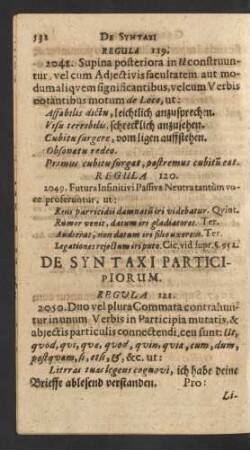 532 DE SYNTAXI
REGULA 119.
2048. Supina posteriora in U construun-
tur, vel cum Adjectivis facultatem aut mo-
dum aliqvem significantibus, vel cum Verbis
notantibus motum de Loco, ut:
Affabilis dictu, leichtlich anzusprechen.
Visu terribilis, schrecklich anzusehen.
Cubitu surgere, vom ligen auffstehen.
Obsonatu redeo.
Primus cubitu surgat, postremus cubitũ eat.
REGULA 120.
2049. Futura Infinitivi Passiva Neutra tantùm vo-
ce proferuntur, ut:
Reus parricidii damnatũ iri videbatur. Qvint.
Rumor venit, datum iri gladiatores. Ter.
Audieras, non datum iri filio uxorem. Ter.
Legationes rejectum iri puto. Cic. vid supr. §. 951.
DE SYNTAXI PARTICI-
PIORUM.
REGULA 121.
2050. Duo vel plura Commata contrahun-
tur in unum Verbis in Participia mutatis, &
abjectis particulis connectendi, ceu sunt: Ut,
qvod, qvi, qvæ, qvod, qvin, qvia, cum, dum,
postqvam, si, etsi, & &c. ut:
Literas tuas legens cognovi, ich habe deine
Brieffe ablesend verstanden. Pro:
Li-